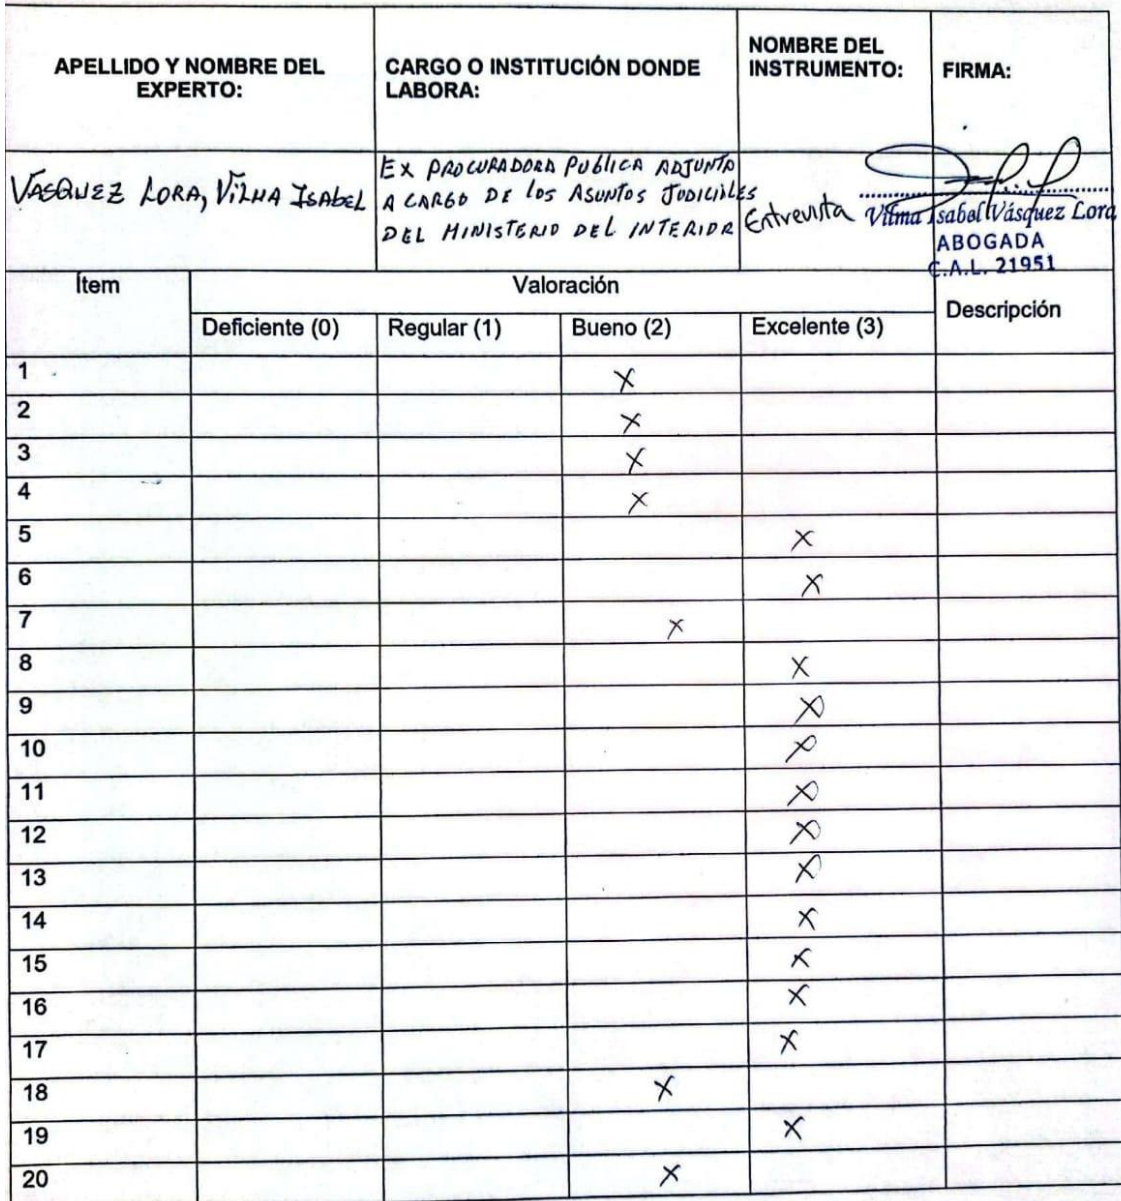 APELLIDO Y NOMBRE DEL EXPERTO:
CARGO O INSTITUCIÓN DONDE LABORA:
NOMBRE DEL INSTRUMENTO:
FIRMA:
VASQUEZ LORA, VILMA ISABEL
EX PROCURADORA PUBLICA ADJUNTA
A CARGO DE LOS ASUNTOS JUDICIALES
DEL MINISTERIO DEL INTERIOR
Entrevista
Vilma Isabel Vásquez Lora
ABOGADA
C.A.L. 21951
Ítem
Valoración
Descripción
Deficiente (0) Regular (1) Bueno (2) Excelente (3)
1 X
2 X
3 X
4 X
5 X
6 X
7 X
8 X
9 X
10 X
11 X
12 X
13 X
14 X
15 X
16 X
17 X
18 X
19 X
20 X